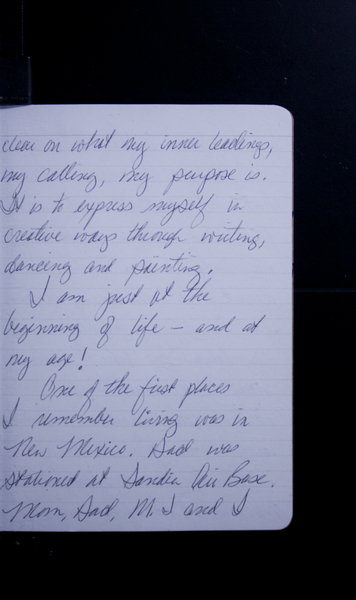 clear on what my inner leadings,
my calling, my purpose is.
It is to express myself in
creative ways through writing,
dancing and painting.
I am just at the
beginning of life – and at
my age!
One of the first places
I remember living was in
New Mexico. Dad was
stationed at Sandia Air Base.
Mom, Dad, M. J and I